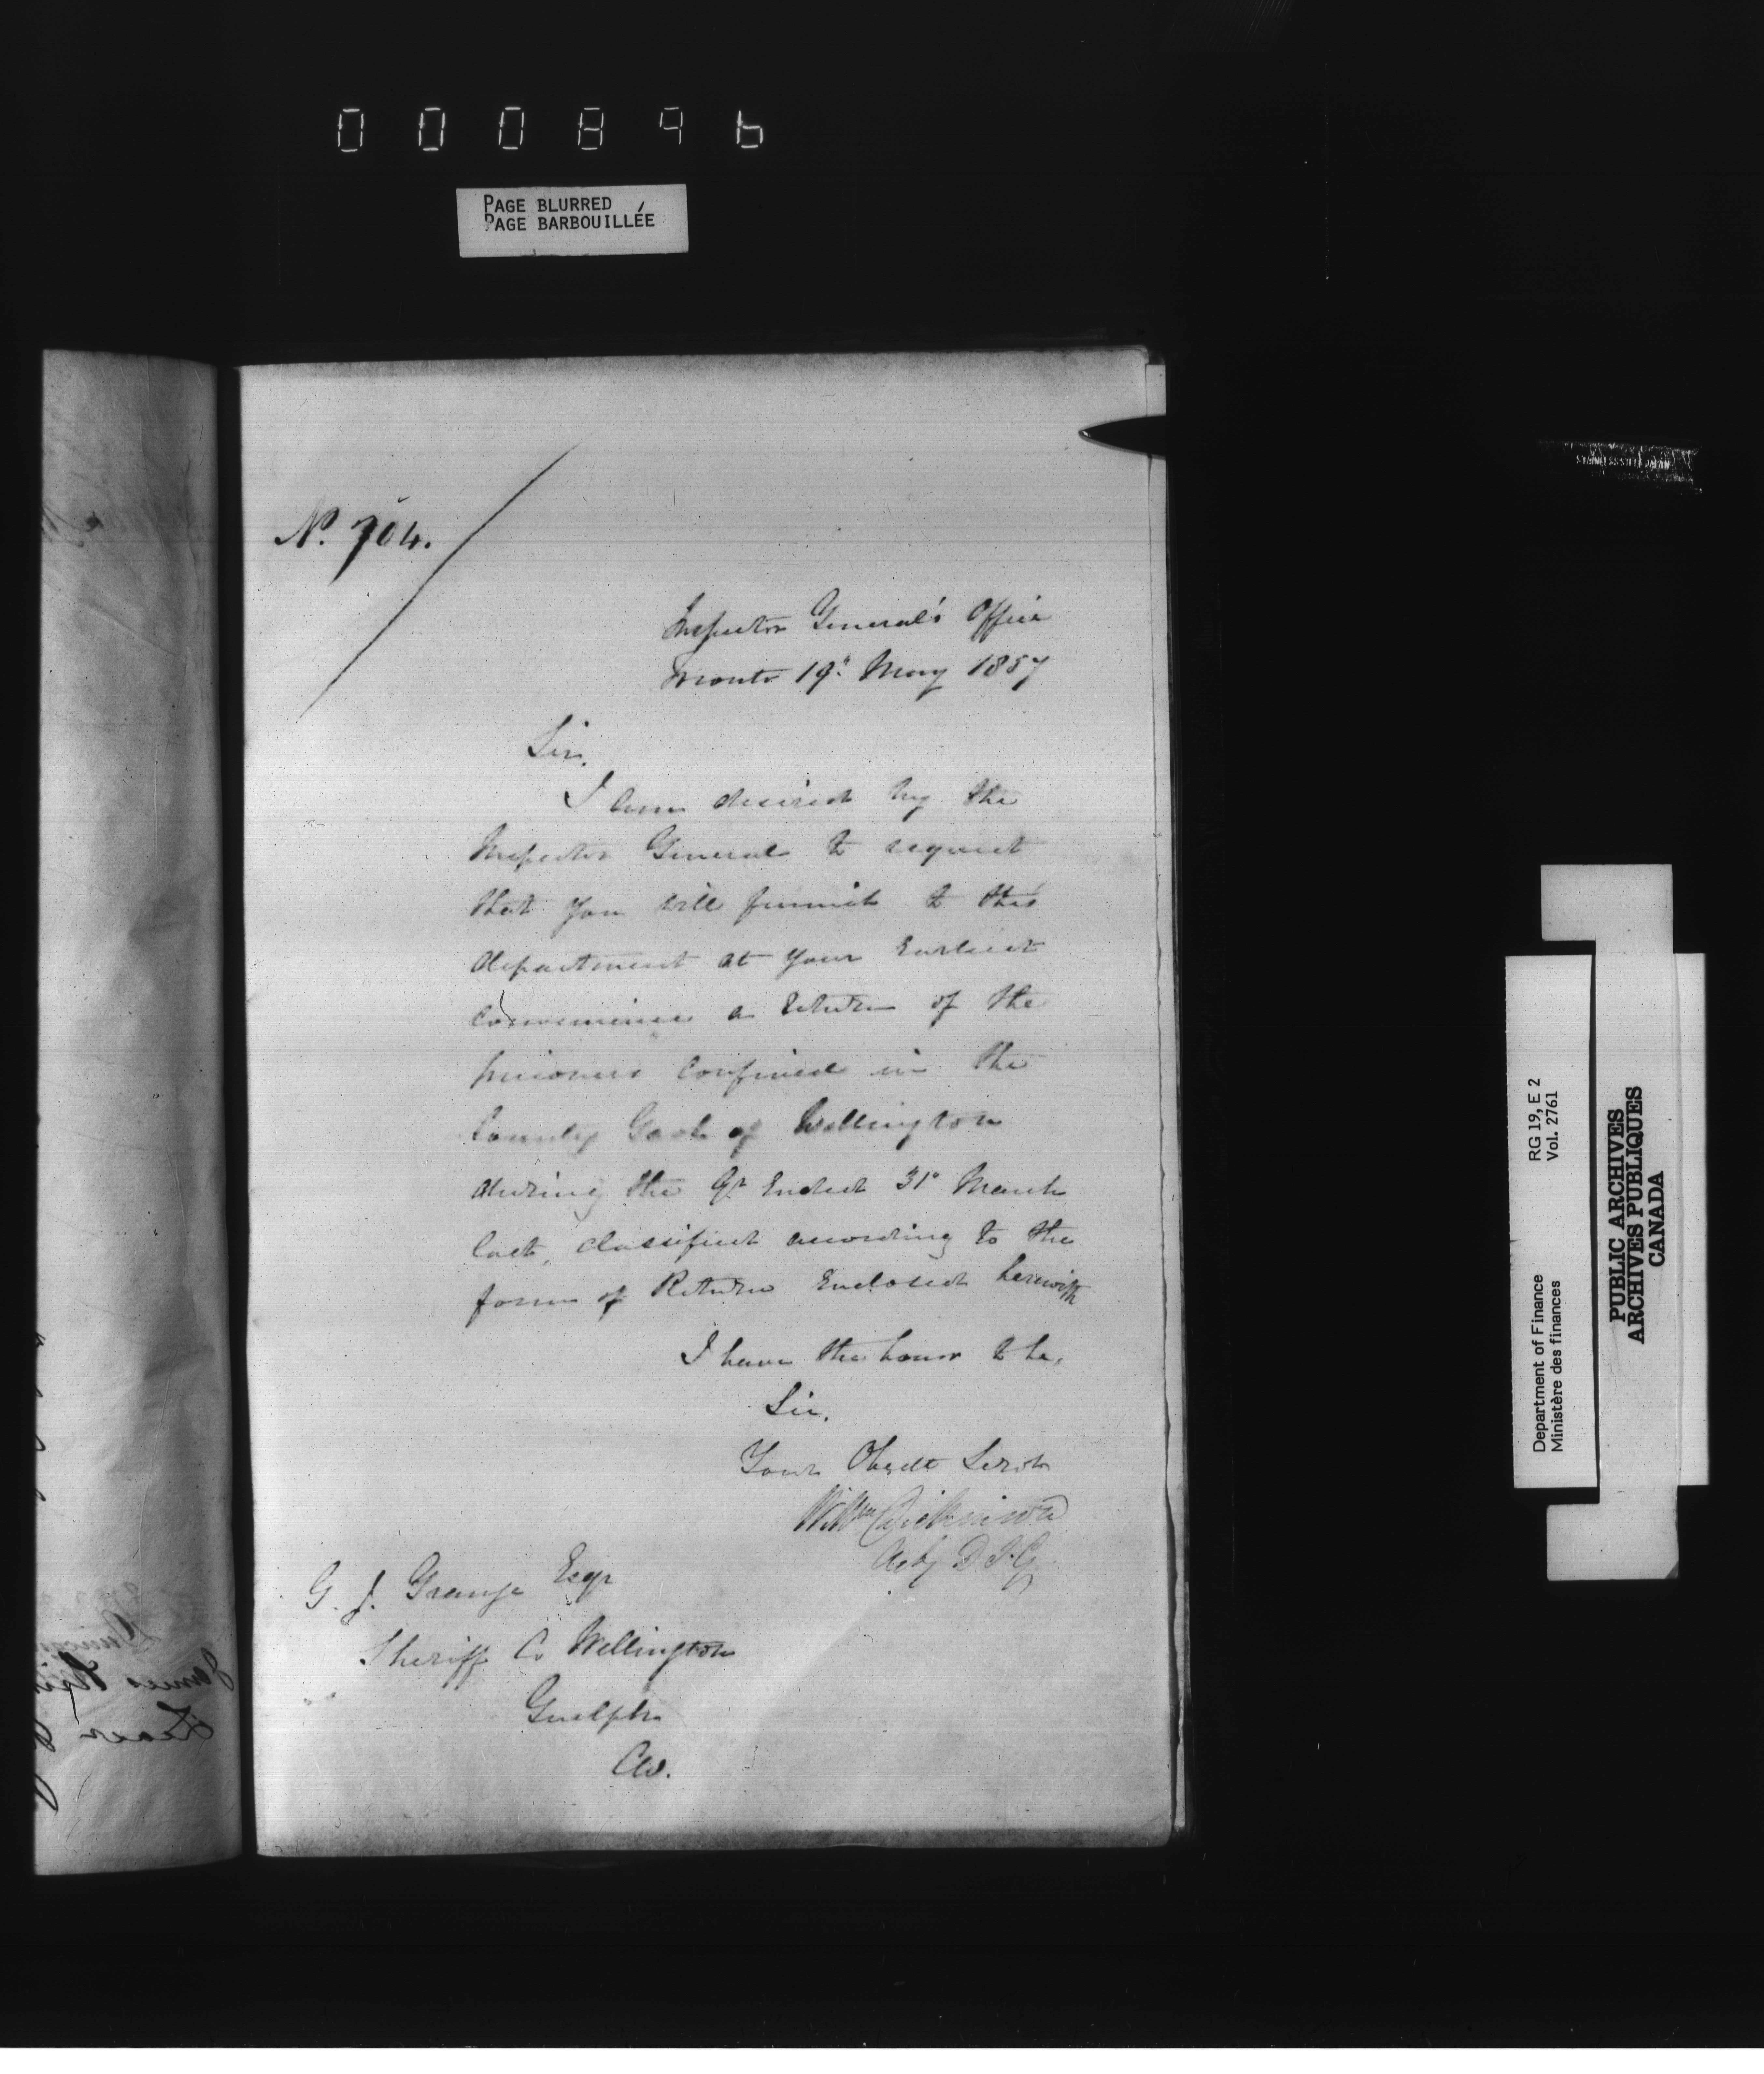 000896
PAGE BLURRED
PAGE BARBOUILLÉE
No. 704.
Inspector General's Office
Toronto 19" May 1857
Sir,
I am desired by the
Inspector General to request
that you will furnish to this
department at your Earliest
Convenience a Return of the
prisoners Confined in the
County Gaol of Wellington
during the Qr Ended 31st March
last, classified according to the
form of Return Enclosed herewith
I have the honor to be,
Sir,
Your Obedt Servt
Willm Dickinson
Actg D.I.G.
G. J. Grange Esqr
Sheriff Co Wellington
Guelph
CW.
Department of Finance RG 19, E 2
Ministère des finances Vol. 2761
PUBLIC ARCHIVES
ARCHIVES PUBLIQUES
CANADA